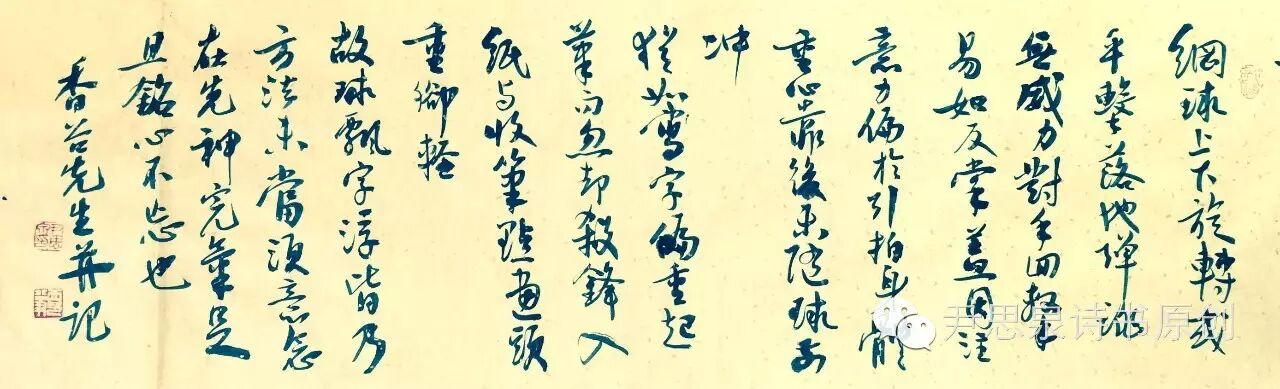 網球上下旋轉或
平擊落地彈跳
無威力對手回擊
易如反掌蓋因注
意力偏於引拍身體
重心靠後未隨球而
冲
猶如寫字偏重起
筆而忽却殺鋒入
紙与收筆點畫頭
重腳輕
故球飄字浮皆乃
方法未當須意念
在先神完氣足
且銘心不忘也
香谷先生并記
尹思泉诗书原创